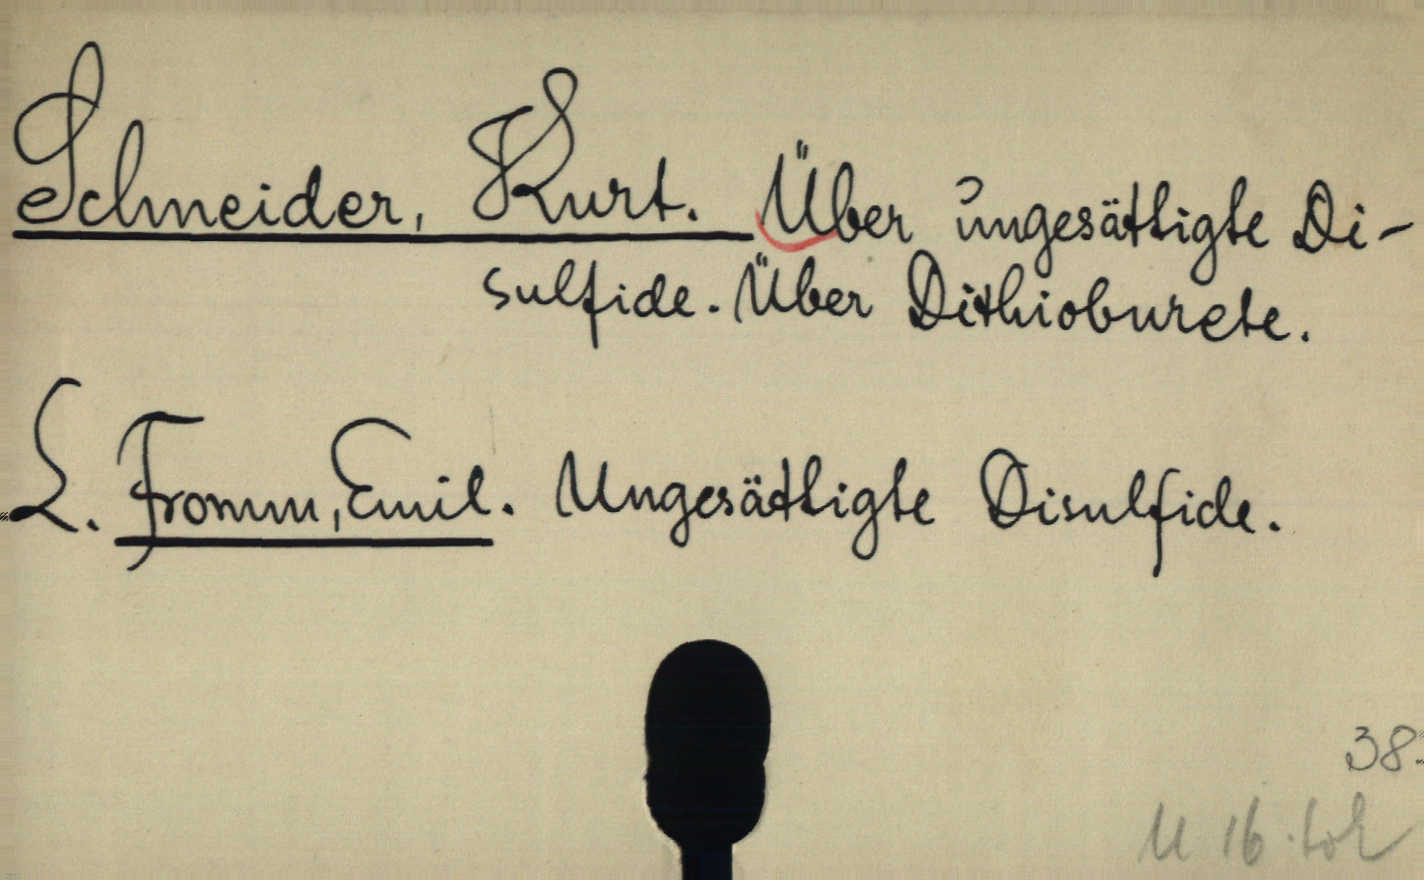 Schneider, Kurt. Über ungesättigte Di-
sulfide. Über Dithioburete.
L. Fromm, Emil. Ungesättigte Disulfide.
38
U 16.